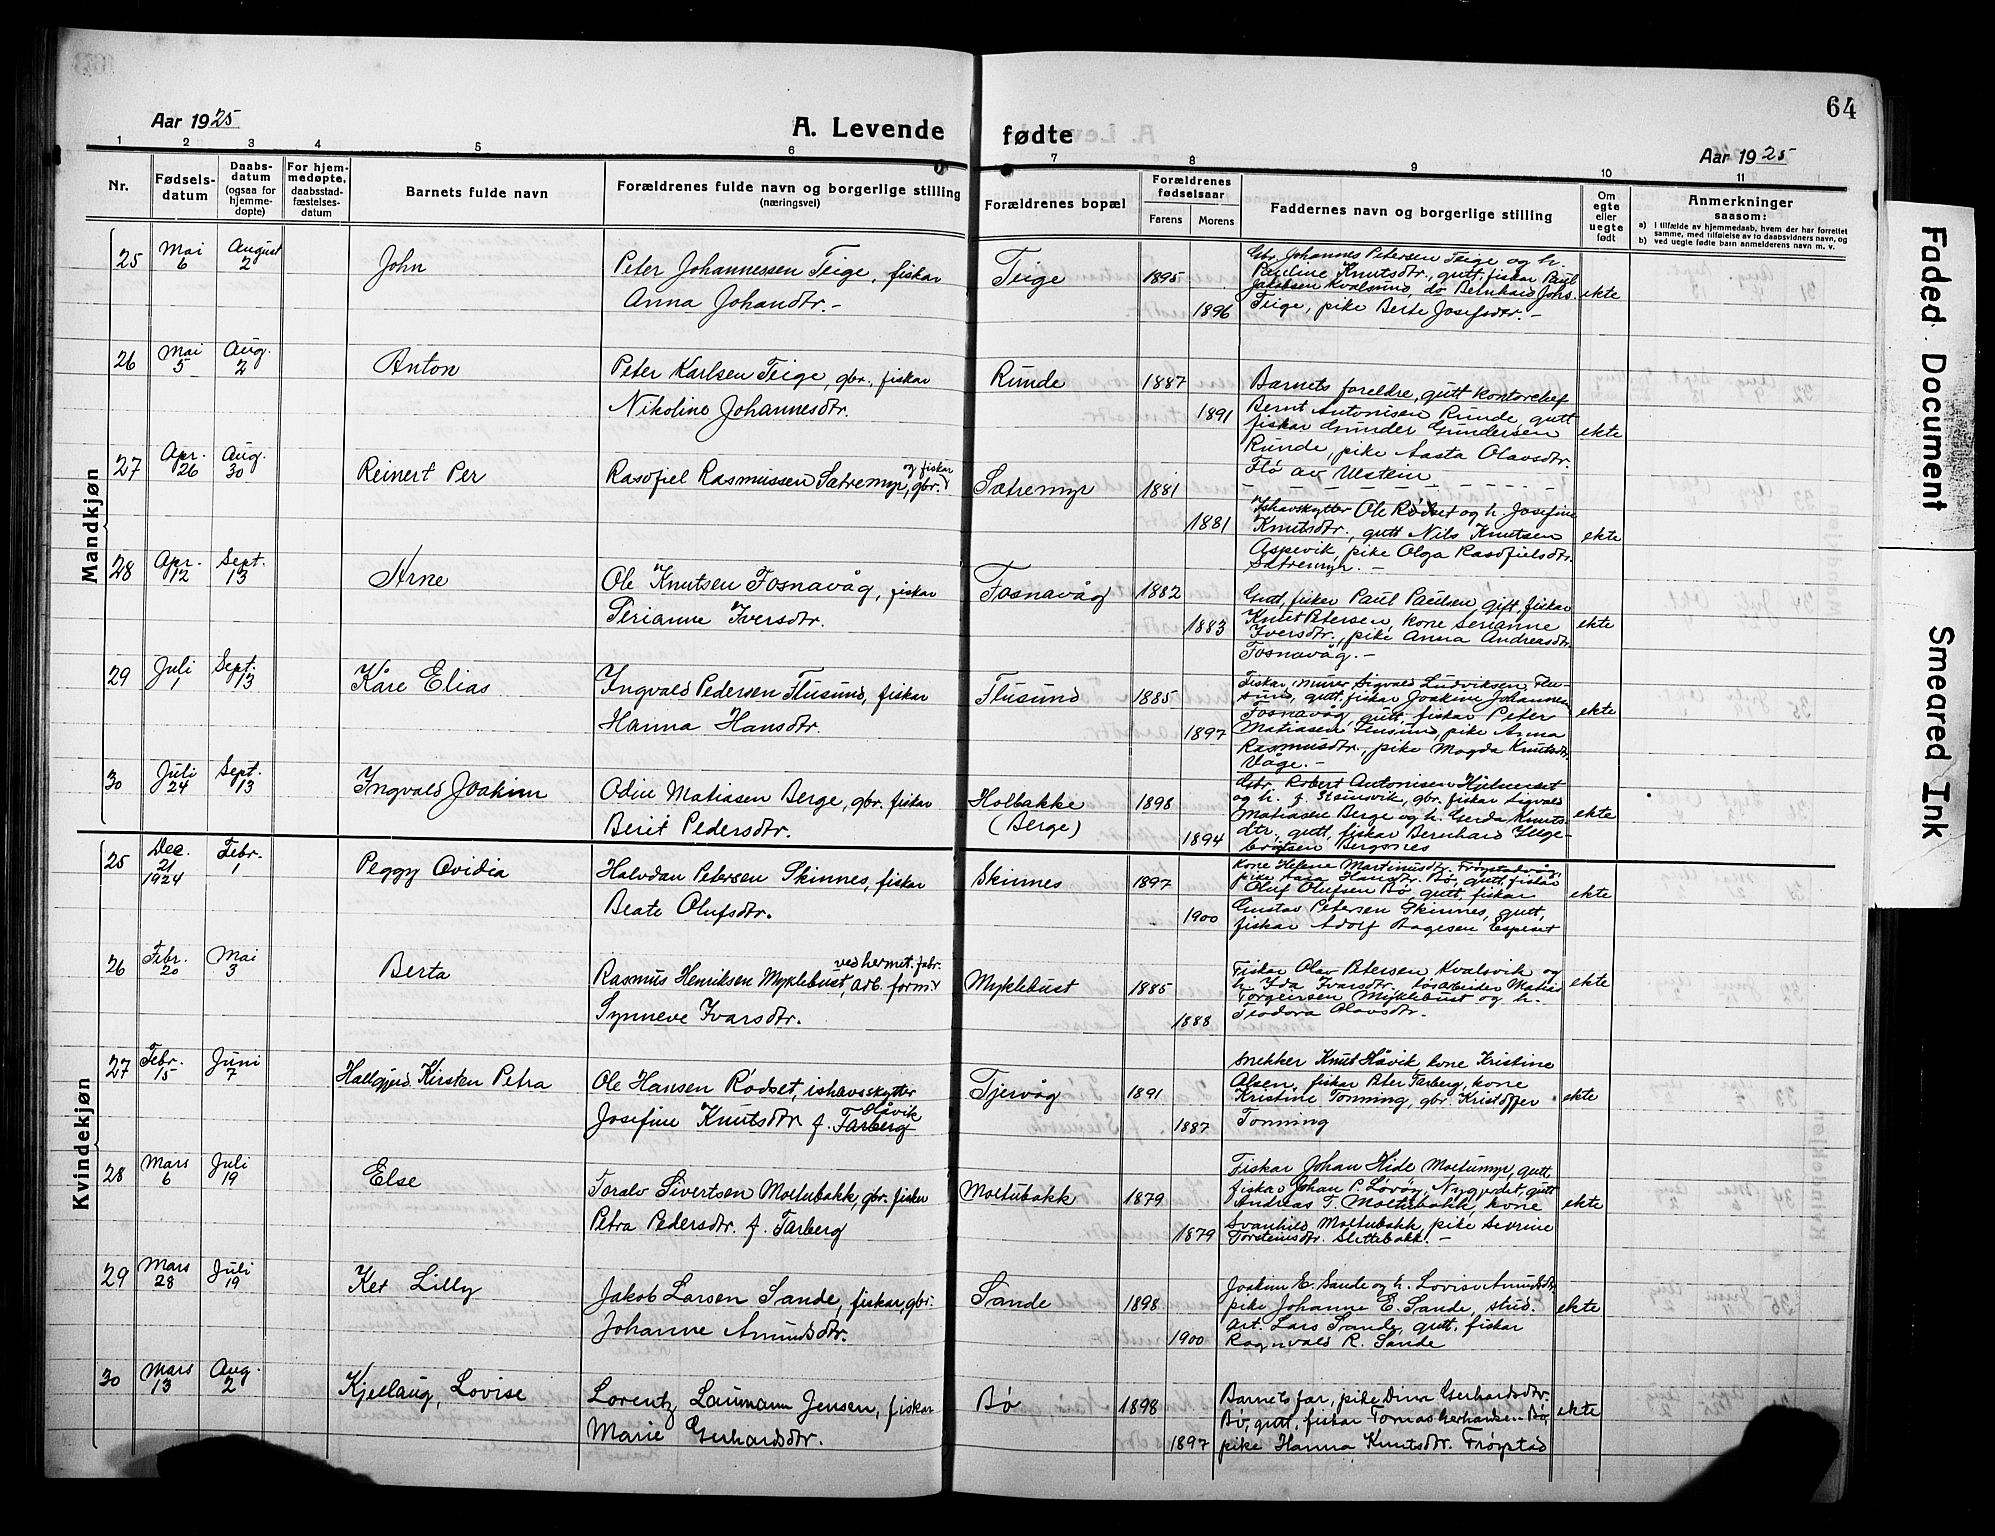 64
Aar 1925
A. Levende fødte
Aar 1925
1 2 3 4 5 6 7 8 9 10 11
Nr.
Fødsels-
datum
Daabs-
datum
(ogsaa for
hjemme-
døpte)
For hjem-
medøpte,
daabsstad-
fæstelses-
datum
Barnets fulde navn
Forældrenes fulde navn og borgerlige stilling
(næringsvei)
Forældrenes bopæl
Forældrenes
fødselsaar
Farens Morens
Faddernes navn og borgerlige stilling
Om
egte
eller
uegte
født
Anmerkninger
saasom:
a) I tilfælde av hjemmedaab, hvem der har forrettet
samme, med tilføielse av to daabsvidners navn, og
b) ved uegte fødte barn anmelderens navn m. v.
Mandkjøn
25 Mai 6 August 2 John
Peter Johannessen Teige, fiskar
Anna Johandtr. -
Teige 1895 1896
Gbr. Johannes Petersen Teige og h.
Pauline Knutsdtr., gutt, fiskar Paul
Jakobsen Kvalsund, do Bernhard Johs.
Teige, pike Berte Josefsdtr. -
ekte
26 Mai 5 Aug. 2 Anton
Peter Karlsen Teige, gbr., fiskar
Nikoline Johannesdtr.
Runde 1887 1891
Barnets foreldre, gutt kontorchef
Bernt Antonisen Runde, gutt
fiskar Gunder Gundersen
Runde, pike Aasta Olavsdtr.
Flø av Ulstein
ekte
27 Apr. 26 Aug. 30 Reinert Per
Rasofiel Rasmussen Sætremyr, gbr. og fiskar
Sætremyr 1881 1881
Ishavskytter Ole Rødset og h. Josefine
Knutsdtr., gutt Nils Knutsen
Aspevik, pike Olga Rasofielsdtr.
Sætremyr. -
ekte
28 Apr. 12 Sept. 13 Arne
Ole Knutsen Fosnavåg, fiskar
Serianne Iversdtr.
Fosnavåg 1882 1883
Gutt, fisker Paul Paulsen, gift, fiskar
Knut Petersen, kone Serianne
Iversdtr., pike Anna Andreasdtr.
Fosnavåg. -
ekte
29 Juli 1 Sept. 13 Kåre Elias
Ingvald Pedersen Flusund, fiskar
Hanna Hansdtr.
Flusund 1885 1897
Fiskar, murer Sigvald Ludviksen Flu-
sund, gutt, fiskar Joakim Johannes
Fosnavåg, gutt, fiskar Peter
Matiasen Flusund, pike Anna
Rasmusdtr., pike Magda Knutsdtr.
Våge. -
ekte
30 Juli 24 Sept. 13 Ingvald Joakim
Odin Matiasen Berge, gbr. fiskar
Berit Pedersdtr.
Holbakke
(Berge)
1898 1894
Gbr. Robert Antonisen Hjelmeset
og h. f. Steinsvik, gbr. fiskar Sigvald
Matiasen Berge og h. Gerda Knuts-
dtr., gutt, fiskar Bernhard Inge-
brigtsen Bergsnes
ekte
Kvindekjøn
25 Dec. 21 1924 Febr. 1 Peggy Ovidia
Halvdan Petersen Skinnes, fiskar
Beate Olufsdtr.
Skinnes 1897 1900
Kone Helene Martinusdtr. Frøystadvåg,
pike Aasa Hansdtr. Bø, gutt, fiskar
Oluf Olufsen Bø, gutt, fiskar
Gustav Petersen Skinnes, gutt,
fiskar Adolf Aagesen Espeset
ekte
26 Febr. 20 Mai 3 Berta
Rasmus Henriksen Myklebust, arb. form. ved hermet. fabr.
Synneve Ivarsdtr.
Myklebust 1885 1888
Fiskar Olav Petersen Kvalsvik og
h. Ida Ivarsdtr. løsarbeider Matias
Torgeirsen Myklebust og h.
Teodora Olavsdtr.
ekte
27 Febr. 15 Juni 7 Hallgjerd Kirsten Petra
Ole Hansen Rødset, ishavskytter
Josefine Knutsdtr f. Tarberg Håvik
Tjervåg 1891 1887
Snekker Knut Håvik, kone Kristine
Olsen, fiskar Peter Tarberg, kone
Kristine Tonning, gbr. Kristoffer
Tonning
ekte
28 Mars 6 Juli 19 Else
Toralv Sivertsen Moltubakk, gbr. fisker
Petra Pedersdtr. f. Tarberg
Moltubakk 1879 1879
Fiskar Johan Hide Moltumyr, gutt,
fiskar Johan P. Løvøy, Nygjerdet, gutt
Andreas T. Moltubakk, kone
Svanhild Moltubakk, pike Severine
Torsteinsdtr. Slettebakk. -
ekte
29 Mars 28 Juli 19 Ket Lilly
Jakob Larsen Sande, fiskar, gbr.
Johanne Amundsdtr.
Sande 1898 1900
Joakim E. Sande og h. Lovise Amundsdtr
pike Johanne E. Sande, stud.
art. Lars Sande, gutt, fiskar
Ragnvald R. Sande
ekte
30 Mars 13 Aug. 2 Kjellaug, Lovise
Lorentz Laumann Jensen, fiskar
Marie Gerhardsdtr.
Bø 1898 1897
Barnets far, pike Dina Gerhardsdtr.
Bø, gutt, fiskar Tomas Gerhardsen Bø,
pike Hanna Knutsdtr. Frøystad
ekte
Faded Document
Smeared Ink